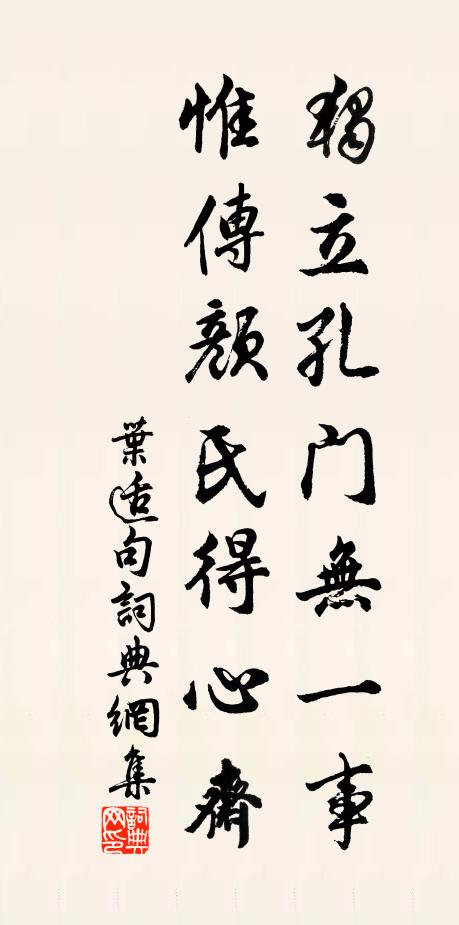 獨立孔門無一事
惟傳顏氏得心齋
葉适句詞典網集
詞典網印